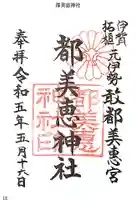 都美恵神社
伊賀
柘植
元伊勢
敢都美恵宮
都美恵神社
奉拝
令和五年五月十六日